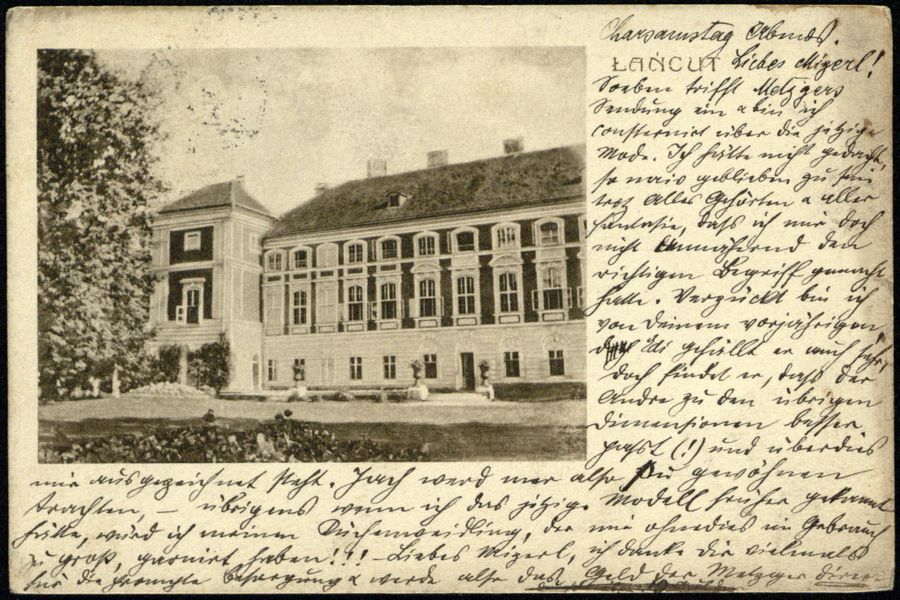 Charsamstag Abends.
ŁAŃCUT Liebes Mizerl!
Soeben trifft Metzgers
Sendung ein & bin ich
consterniert über die jetzige
Mode. Ich hätte nicht gedacht,
so naiv geblieben zu sein
trotz Alles Gehörten & aller
Fantasie, daß ich mir doch
nicht annähernd den
richtigen Begriff gemacht
hatte. Verzückt bin ich
von Deinem vorjährigen
gefällt er auch sehr,
doch findet er, daß der
Andre zu den übrigen
Dimensionen besser
paßt (!) und überdies
mir ausgezeichnet steht. Jach werd mer also zu gewöhnen
trachten, – übrigens wenn ich das jetzige Modell früher gekannt
hätte, würd ich meinen Küchenweidling, der mir ohnedies im Gebrauch
zu groß, garnirt haben!!! Liebes Mizerl, ich danke Dir vielmals
für die prompte Besorgung & werde also das Geld der Metzger direct